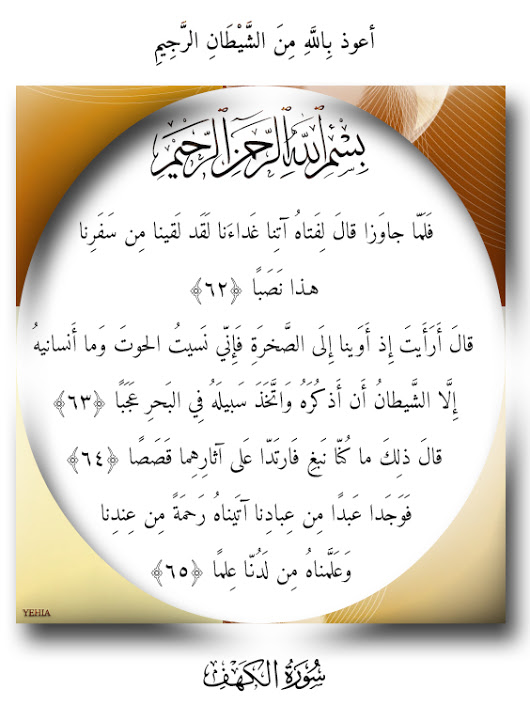 أعوذ بِاللَّهِ مِنَ الشَّيْطَانِ الرَّجِيمِ
بِسْمِ اللَّهِ الرَّحْمَنِ الرَّحِيمِ
فَلَمّا جاوَزا قالَ لِفَتاهُ آتِنا غَداءَنا لَقَد لَقينا مِن سَفَرِنا
هـذا نَصَبًا ﴿٦٢﴾
قالَ أَرَأَيتَ إِذ أَوَينا إِلَى الصَّخرَةِ فَإِنّي نَسيتُ الحوتَ وَما أَنسانيهُ
إِلَّا الشَّيطانُ أَن أَذكُرَهُ وَاتَّخَذَ سَبيلَهُ فِي البَحرِ عَجَبًا ﴿٦٣﴾
قالَ ذلِكَ ما كُنّا نَبغِ فَارتَدّا عَلى آثارِهِما قَصَصًا ﴿٦٤﴾
فَوَجَدا عَبدًا مِن عِبادِنا آتَيناهُ رَحمَةً مِن عِندِنا
وَعَلَّمناهُ مِن لَدُنّا عِلمًا ﴿٦٥﴾
YEHIA
سُورَةُ الكَهْفِ